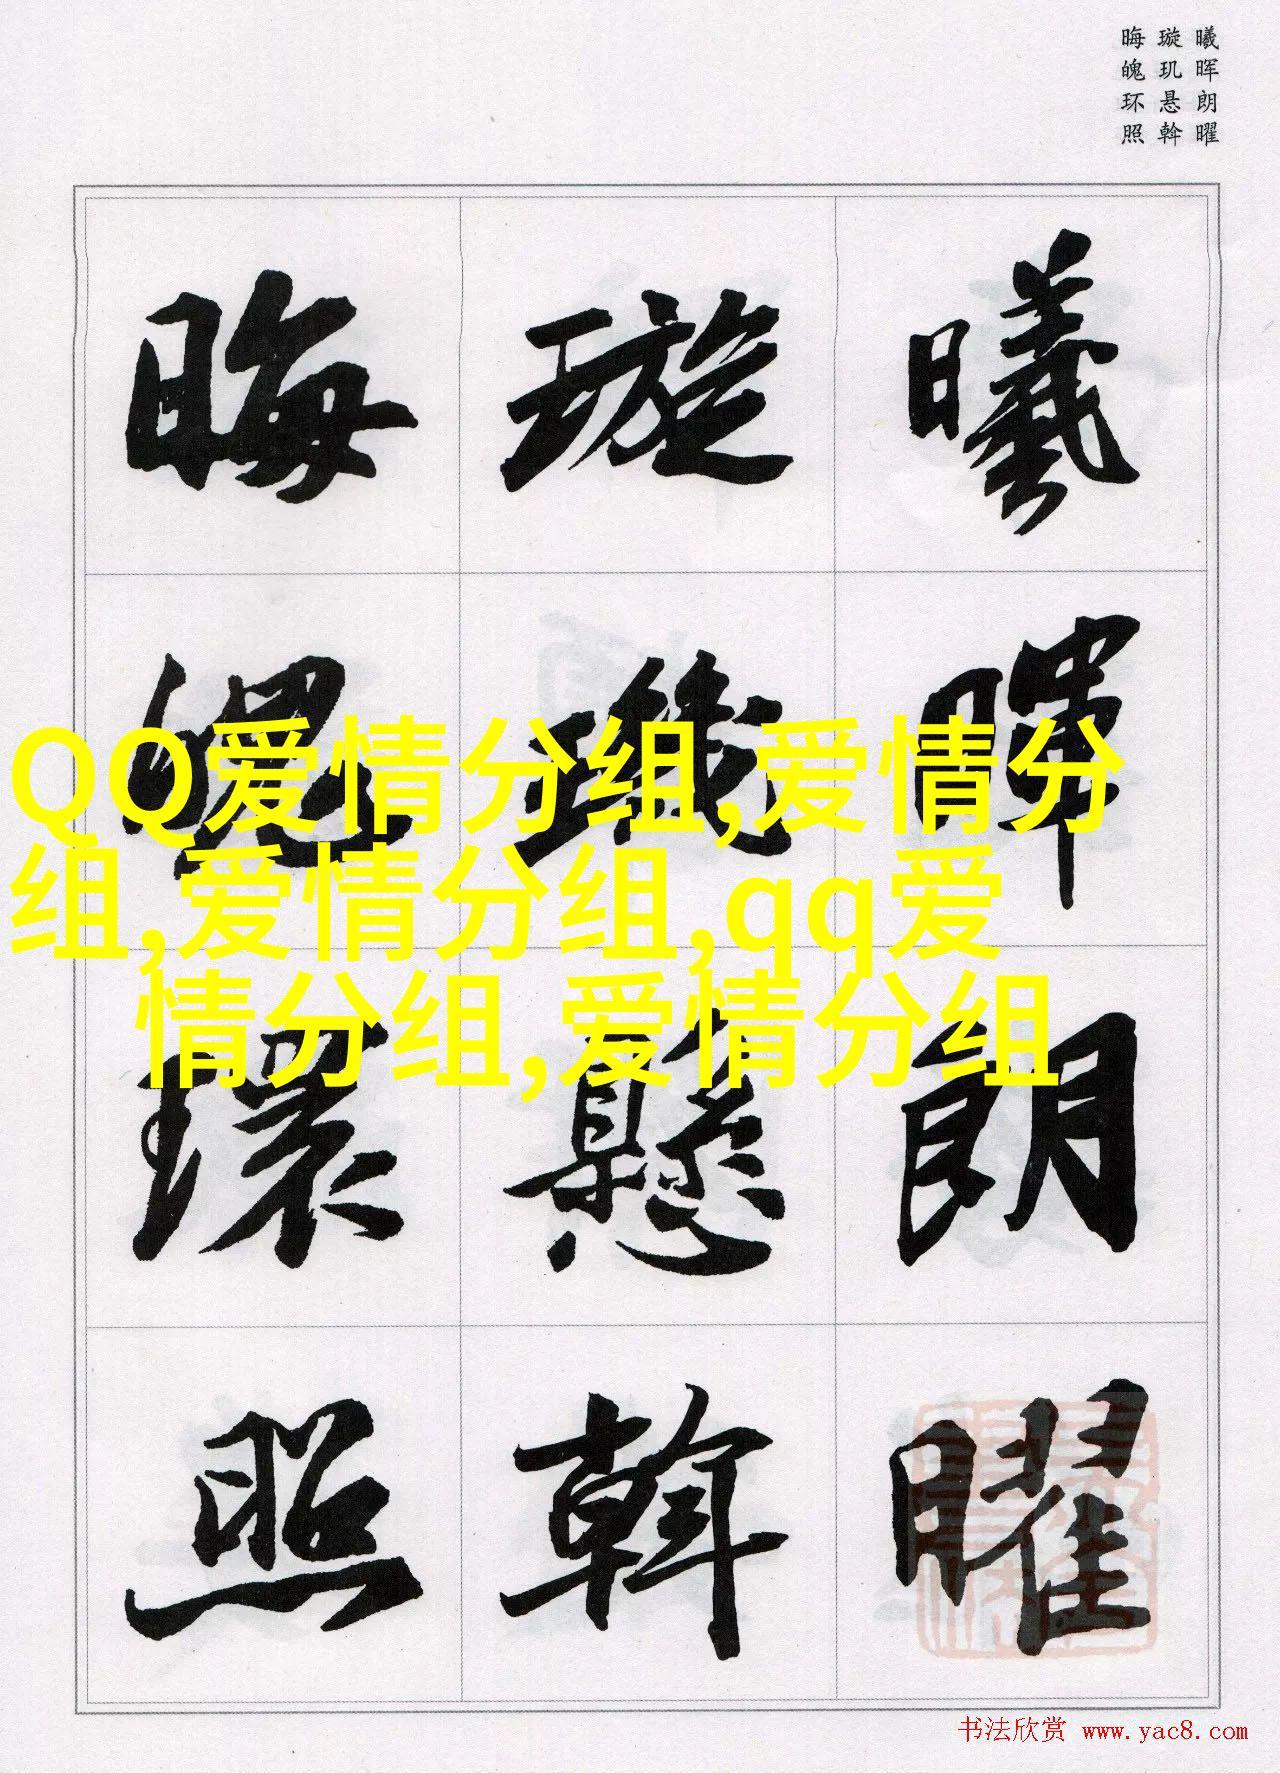 曦晖朗曜
璇玑悬斡
晦魄环照
曦暉朗曜
璇璣懸斡
晦魄環照
QQ爱情分组,爱情分
组,爱情分组,qq爱
情分组,爱情分组
书法欣赏 www.yac8.com